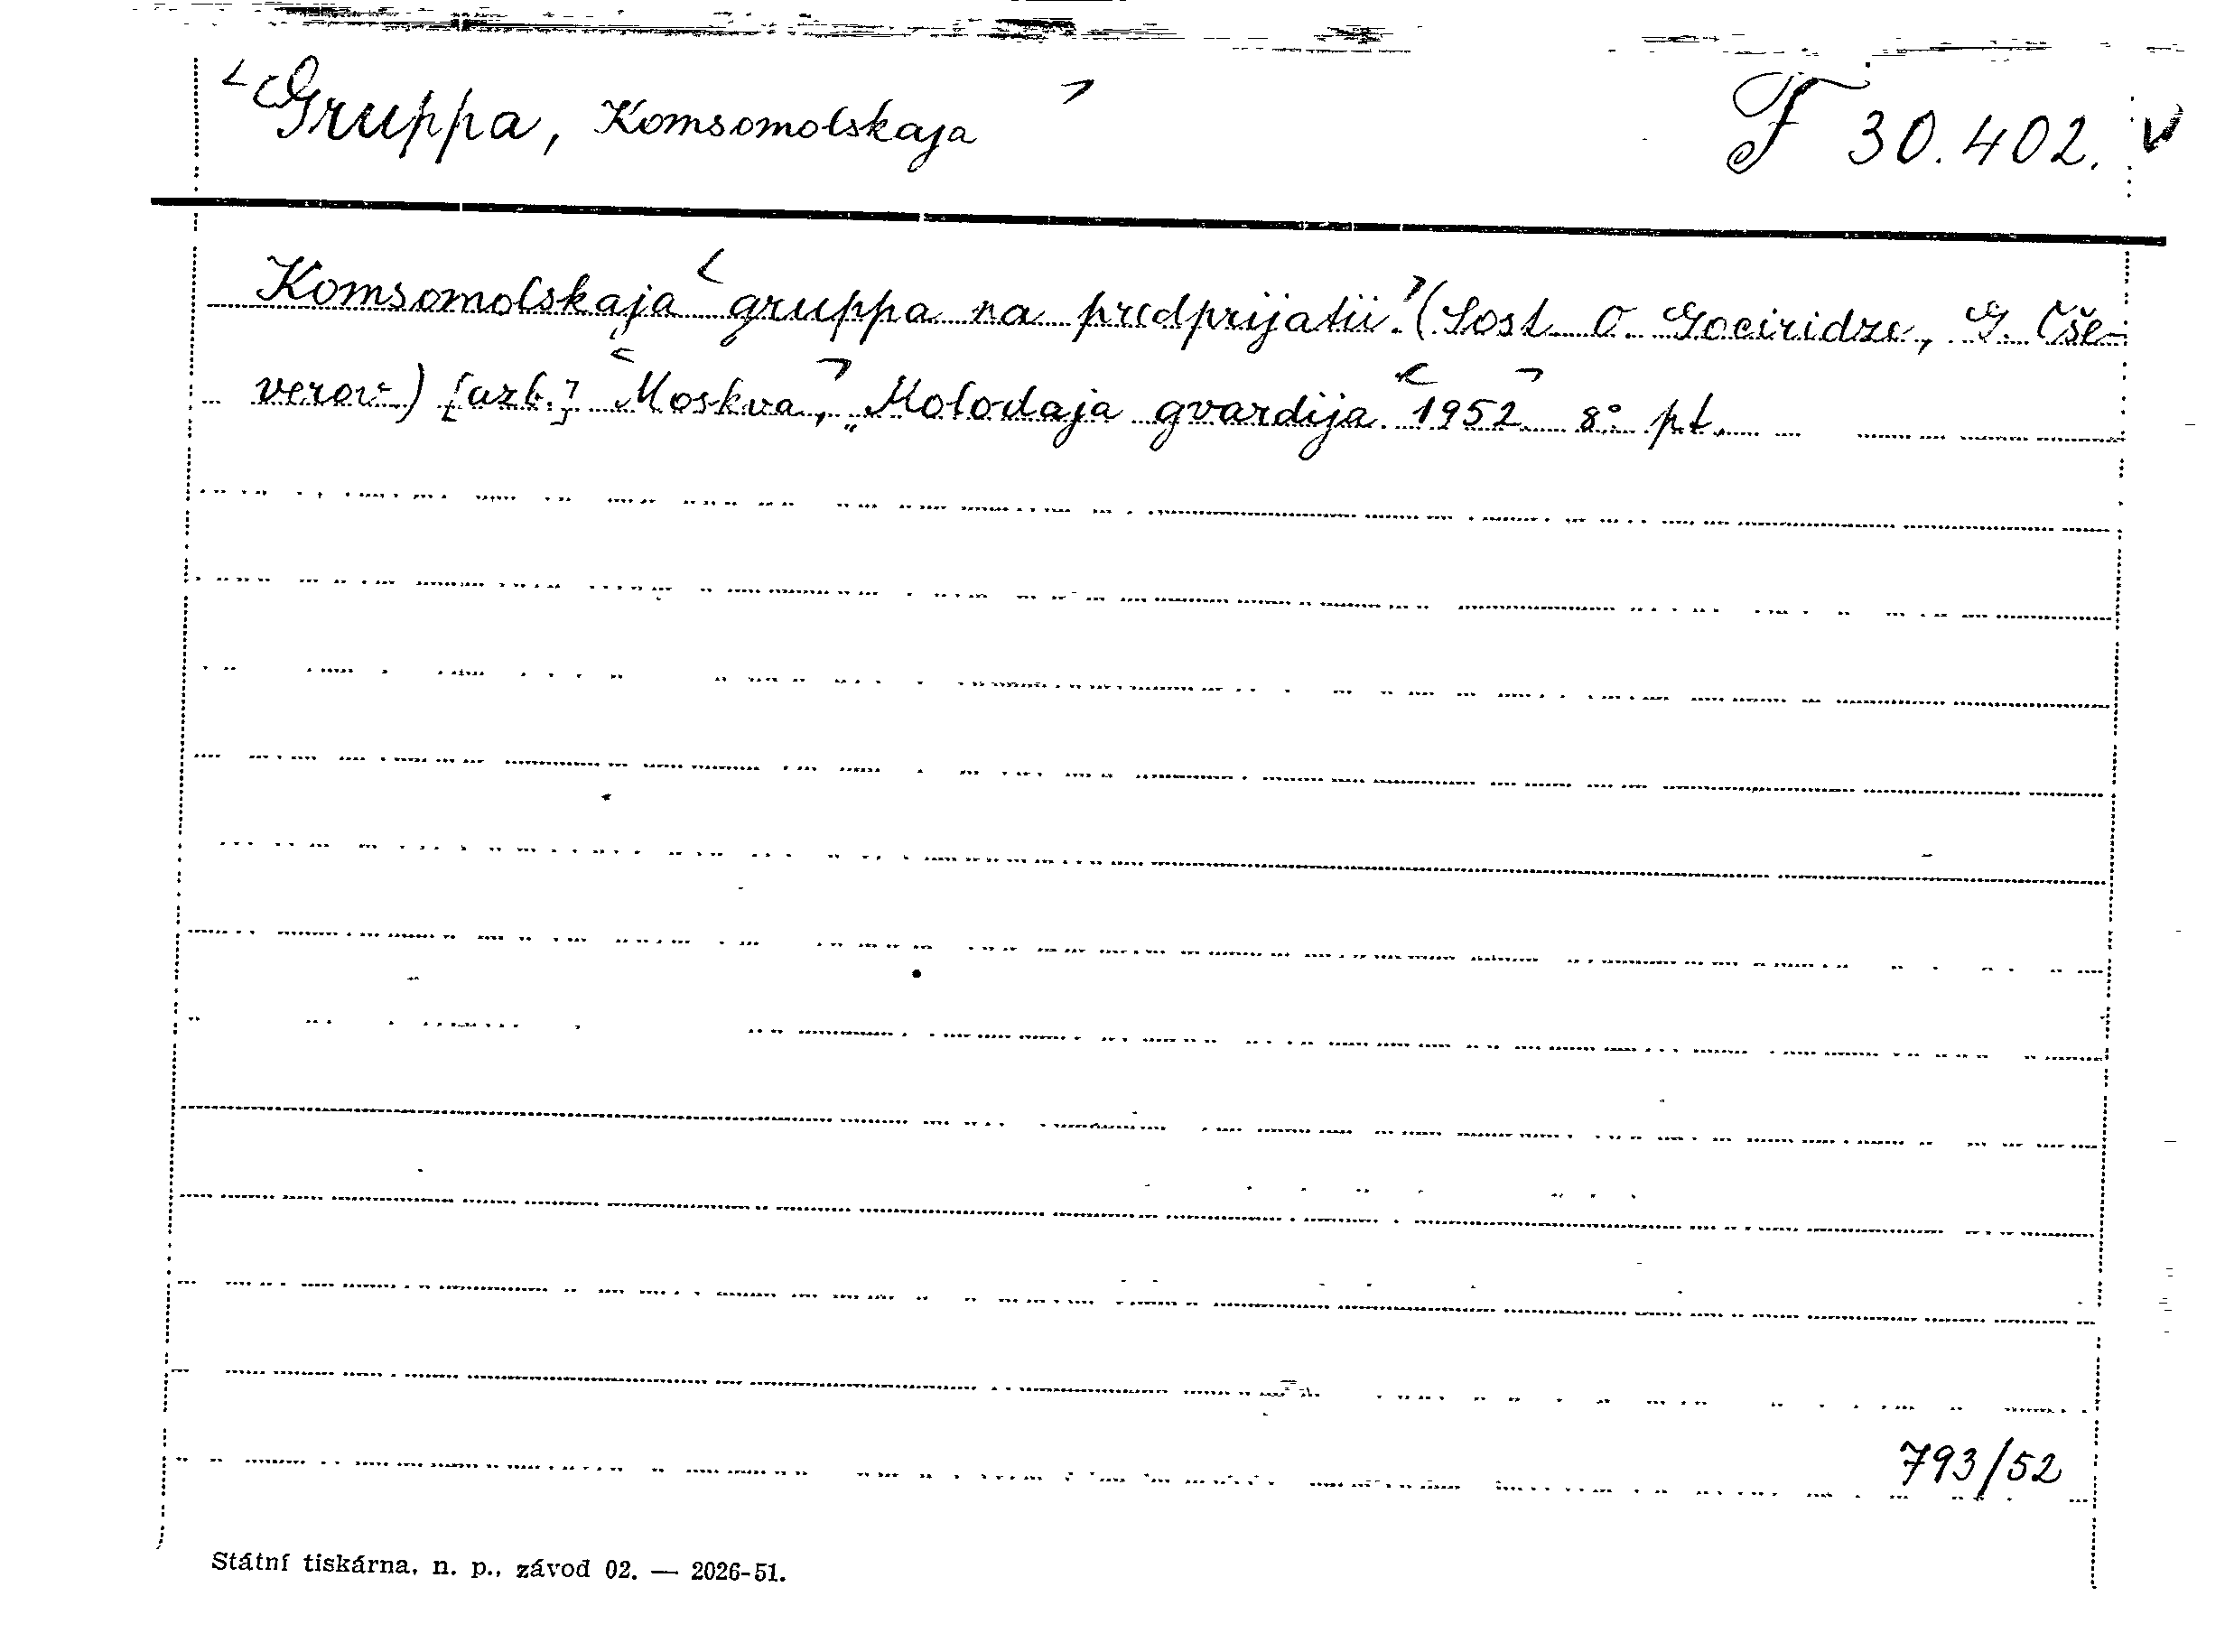 <Gruppa, Komsomolskaja> F 30.402. v
Komsomolskaja <gruppa na predprijatii.> (Sost. O. Gociridze, G. Čše-
verov) [azb.] <Moskva,> „Molodaja gvardija <1952> 8° pt.
793/52
Státní tiskárna, n. p., závod 02. — 2026-51.